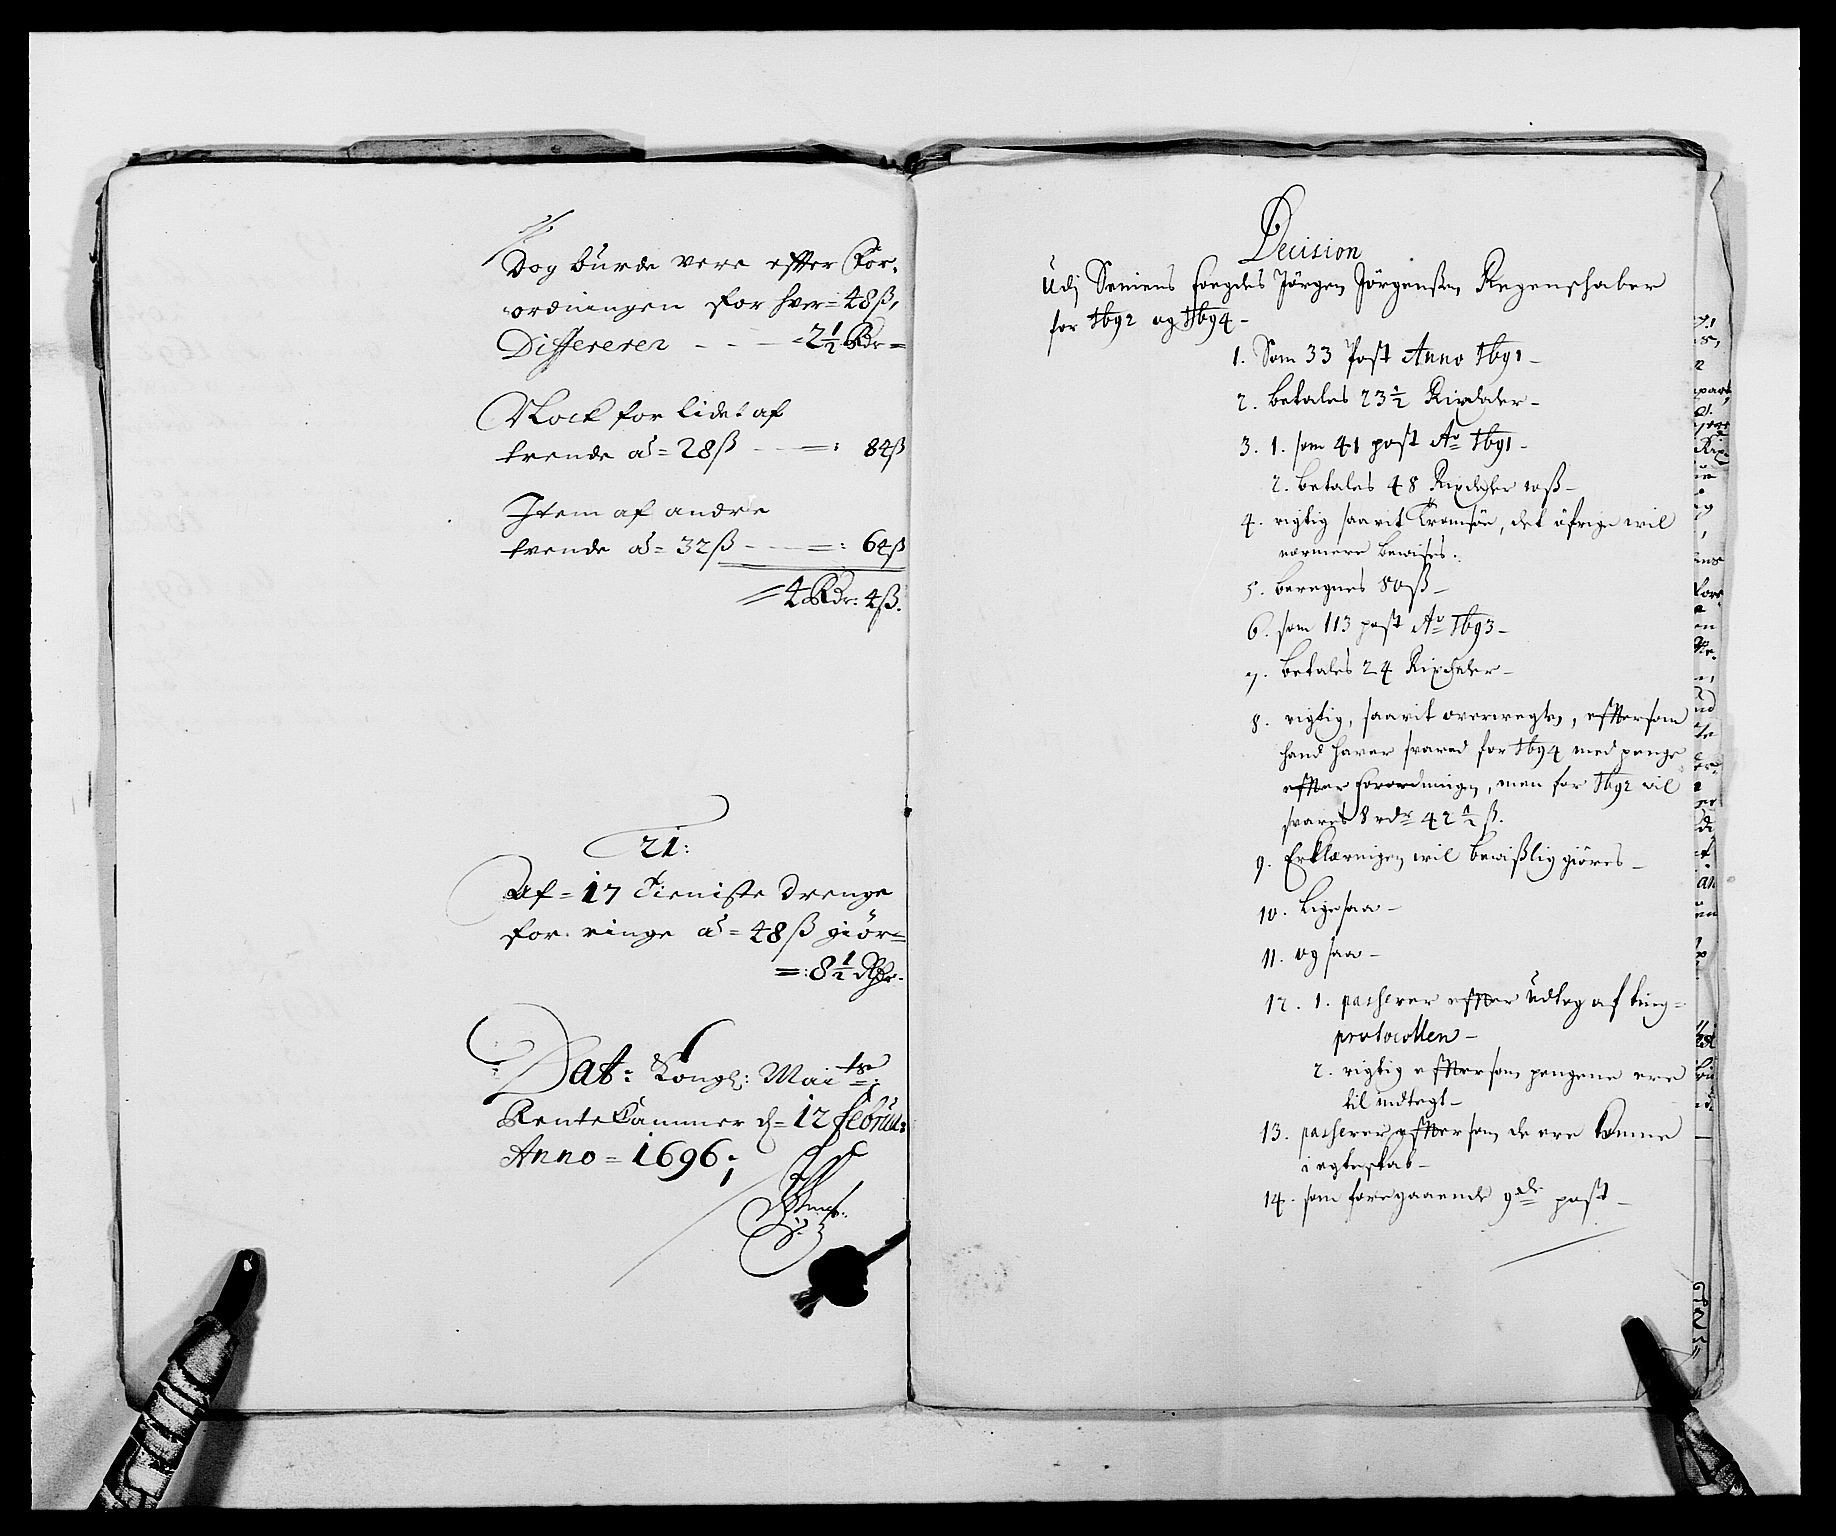 Dog burde vere efter For,
ordningen for hver = 48 ß,
Differerer - - - 2½ Rdr =
Nock for lidet af
trende a = 28 ß - - = : 84 ß
Item af andre
tvende a = 32 ß - - = : 64 ß
= 4 Rdr: 4 ß.
21:
Af = 17 tieniste Drenge
for ringe a = 48 ß giør =
= : 8½ Rdr.
Dat: Kongl: Mai ts:
RenteCammer d = 12 Februa:
Anno = 1696;
Decision
Udj Seniens Fogdes Jørgen Jørgensen Regenschaber
for 1692 og 1694 -
1. Som 33 Post Anno 1691 -
2. betales 23½ Rixdaler -
3. 1. som 41 post Ao 1691 -
2. betales 48 Rixdaler 10 ß -
4. rigtig saavit Tromsøe, det öfrige wil
nærmere bewises.
5. beregnes 80 ß -
6. som 113 post Ao 1693 -
7. betales 24 Rixdaler -
8. rigtig, saavit overwegten, effersom
hand haver svared for 1694 med penge
effter forordningen, men for 1692 wil
svares 8 rdr 42½ ß.
9. Erklæringen wil bewißlig giøres -
10. Ligesaa -
11. og saa -
12. 1. passerer effter udtog af ting-
protocollen -
2. rigtig effttersom pengene ere
til indtegt -
13. passerer effttersom de ere komne
i egteskab -
14. som foregaaende 9de post -